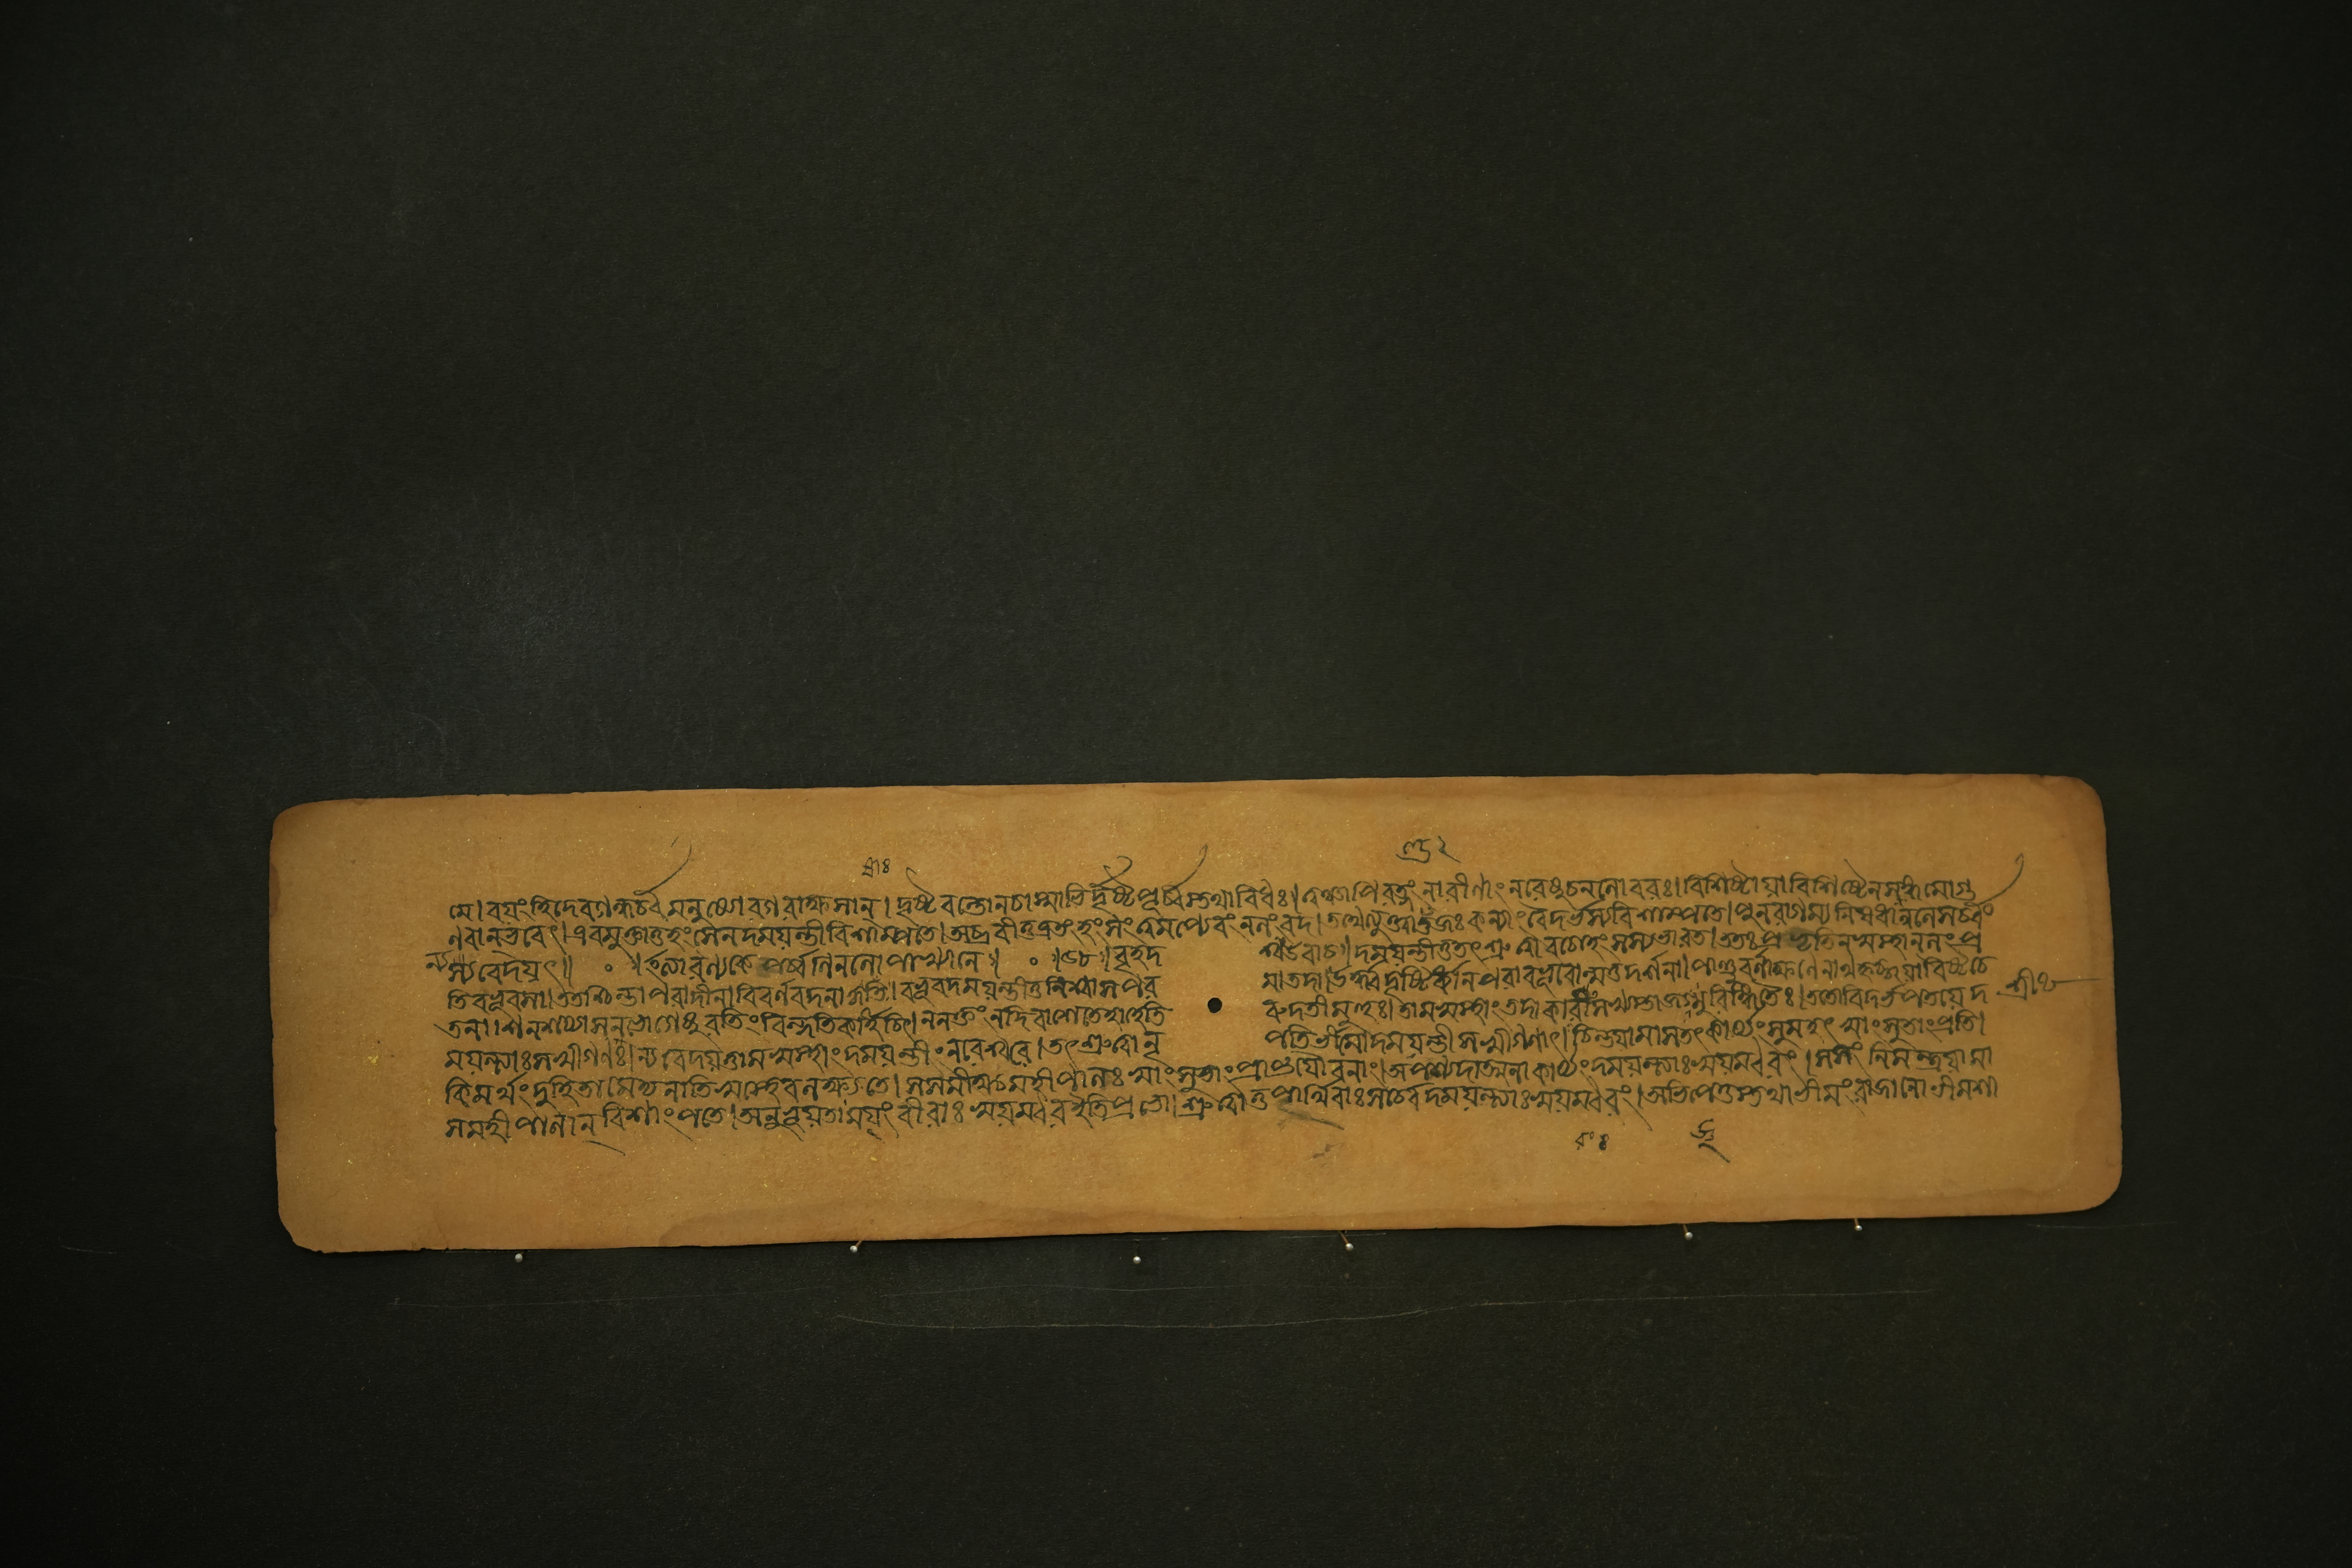 মে। বয়ংহিদেবগন্ধর্ব্বমনুষ্যোরগরাক্ষসান্। দৃষ্টবন্তোনচাস্মাভির্দৃষ্টপূর্ব্বস্তথাবিধঃ। ত্বঞ্চাপিরত্নংনারীণাংনরেষুচনলোবরঃ। বিশিষ্টায়াবিশিষ্টেনসঙ্গমোগু
ণবান্ভবেৎ। এবমুক্তাতুহংসেনদময়ন্তীবিশাম্পতে। অব্রবীত্তত্রতংহংসংত্বমপ্যেবংনলংবদ। তথেত্যুক্ত্বাণ্ডজঃকন্যাংবৈদর্ভস্যবিশাম্পতে। পুনরাগম্যনিষধান্নলেসর্ব্বং
ন্যবেদয়ৎ॥ ০ ॥ ইত্যারণ্যকেপর্ব্বণিনলোপাখ্যানে॥ ০ ॥ বৃহদ শ্বউবাচ॥ দময়ন্তীতুতৎশ্রুত্বাবচোহংসস্যভারত। ততঃপ্রভৃতিনস্বস্থানলংপ্র
তিবভূবসা। ততশ্চিন্তাপরাদীনাবিবর্ণবদনা বভূবদময়ন্তীতুনিশ্বাসপর মাতদা। ঊর্দ্ধদৃষ্টির্ধ্যানপরাবভূবোন্মত্তদর্শনা। পাণ্ডুবর্ণাক্ষণেনাথহৃচ্ছয়াবিষ্টচে
তনা। নশয্যাসনভোগেষুরতিংবিন্দতিকর্হিচিৎ। ননক্তংনদিবাশেতেহাহেতি রুদতীমুহুঃ। তামস্বস্থাংতদাকারাংসখ্যস্তাজজ্ঞুরিঙ্গিতৈঃ। ততোবিদর্ভপতয়েদ
ময়ন্ত্যাঃসখীগণঃ। ন্যবেদয়ত্তামস্বস্থাংদময়ন্তীংনরেশ্বরে। তৎশ্রুত্বানৃ পতির্ভীমোদময়ন্তীসখীগণাৎ। চিন্তয়ামাসতৎকার্য্যংসুমহৎস্বাংসুতাংপ্রতি।
কিমর্থংদুহিতামেদ্যনাতিস্বস্থেবলক্ষ্যতে। সসমীক্ষ্যমহীপালঃস্বাংসুতাংপ্রাপ্তযৌবনাং। অপশ্যদাত্মনাকার্য্যংদময়ন্ত্যাঃস্বয়ম্বরং। নিমন্ত্রয়ামা
সমহীপালান্বিশাংপতে। অনুভূয়তাময়ংবীরাঃস্বয়ম্বরইতিপ্রভো। শ্রুত্বাতুপার্থিবাঃসর্ব্বেদময়ন্ত্যাঃস্বয়ম্বরং। অভিজগ্মুস্তথাভীমংরাজানোভীমশা